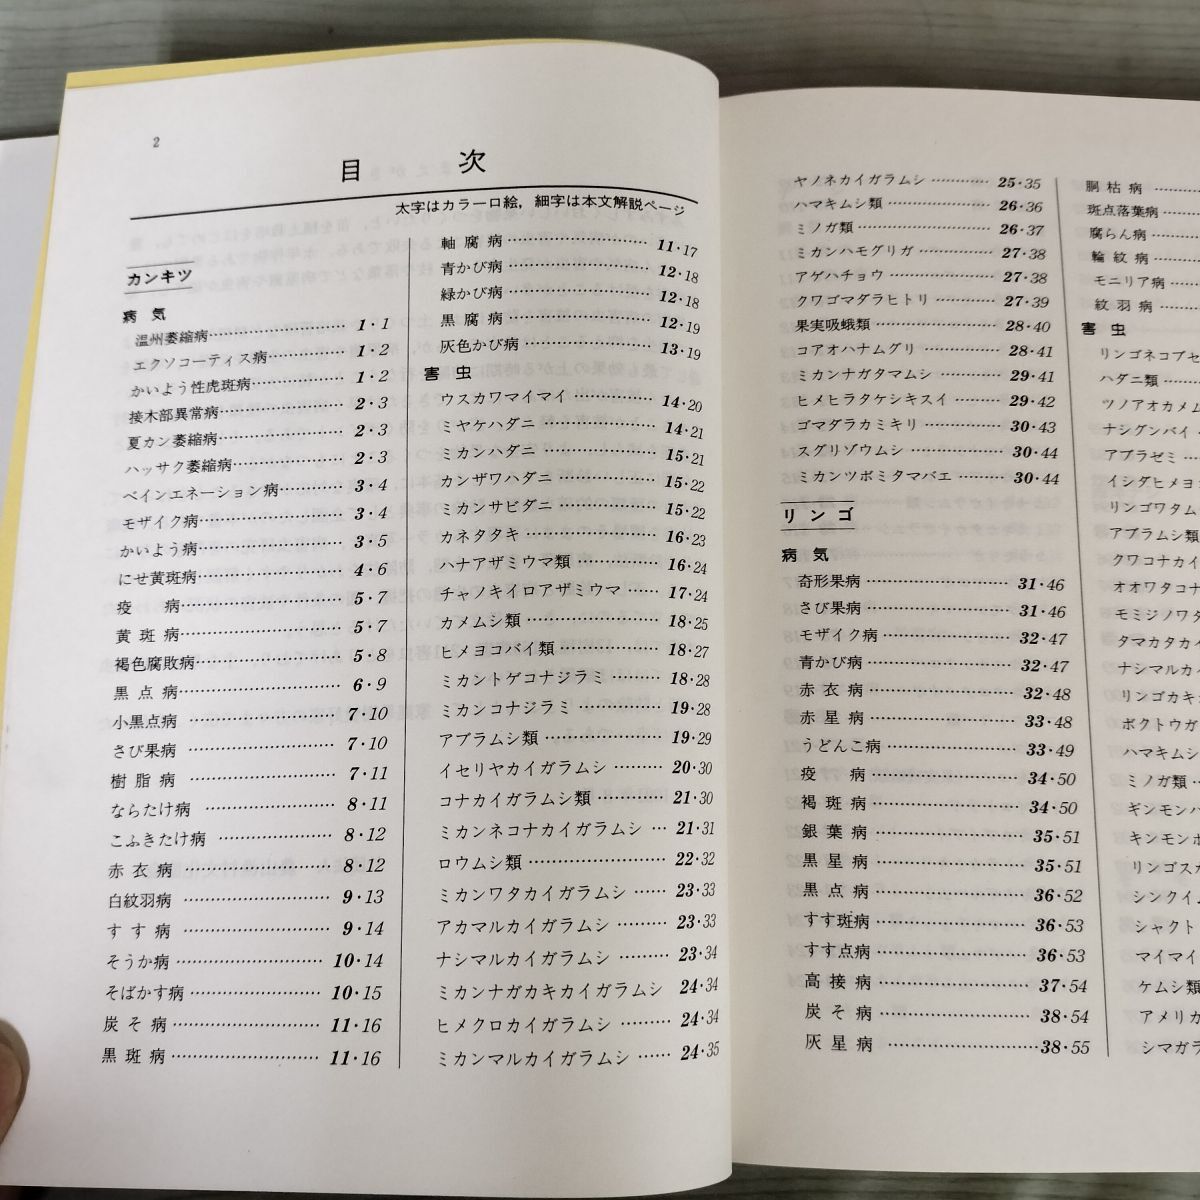 2
目次
太字はカラー口絵，細字は本文解説ページ
カンキツ
病気
温州萎縮病 1・1
エクソコーティス病 1・2
かいよう性虎斑病 1・2
接木部異常病 2・3
夏カン萎縮病 2・3
ハッサク萎縮病 2・3
ベインエネーション病 3・4
モザイク病 3・4
かいよう病 3・5
にせ黄斑病 4・6
疫病 5・7
黄斑病 5・7
褐色腐敗病 5・8
黒点病 6・9
小黒点病 7・10
さび果病 7・10
樹脂病 7・11
ならたけ病 8・11
こふきたけ病 8・12
赤衣病 8・12
白紋羽病 9・13
すす病 9・14
そうか病 10・14
そばかす病 10・15
炭そ病 11・16
黒斑病 11・16
軸腐病 11・17
青かび病 12・18
緑かび病 12・18
黒腐病 12・19
灰色かび病 13・19
害虫
ウスカワマイマイ 14・20
ミヤケハダニ 14・21
ミカンハダニ 15・21
カンザワハダニ 15・22
ミカンサビダニ 15・22
カネタタキ 16・23
ハナアザミウマ類 16・24
チャノキイロアザミウマ 17・24
カメムシ類 18・25
ヒメヨコバイ類 18・27
ミカントゲコナジラミ 18・28
ミカンコナジラミ 19・28
アブラムシ類 19・29
イセリヤカイガラムシ 20・30
コナカイガラムシ類 21・30
ミカンネコナカイガラムシ 21・31
ロウムシ類 22・32
ミカンワタカイガラムシ 23・33
アカマルカイガラムシ 23・33
ナシマルカイガラムシ 23・34
ミカンナガカキカイガラムシ 24・34
ヒメクロカイガラムシ 24・34
ミカンマルカイガラムシ 24・35
ヤノネカイガラムシ 25・35
ハマキムシ類 26・36
ミノガ類 26・37
ミカンハモグリガ 27・38
アゲハチョウ 27・38
クワゴマダラヒトリ 27・39
果実吸蛾類 28・40
コアオハナムグリ 28・41
ミカンナガタマムシ 29・41
ヒメヒラタケシキスイ 29・42
ゴマダラカミキリ 30・43
スグリゾウムシ 30・44
ミカンツボミタマバエ 30・44
リンゴ
病気
奇形果病 31・46
さび果病 31・46
モザイク病 32・47
青かび病 32・47
赤衣病 32・48
赤星病 33・48
うどんこ病 33・49
疫病 34・50
褐斑病 34・50
銀葉病 35・51
黒星病 35・51
黒点病 36・52
すす斑病 36・53
すす点病 36・53
高接病 37・54
炭そ病 38・54
灰星病 38・55
胴枯病
斑点落葉病
腐らん病
輪紋病
モニリア病
紋羽病
害虫
リンゴネコブセ
ハダニ類
ツノアオカメム
ナシグンバイ
アブラゼミ
イシダヒメヨコ
リンゴワタム
アブラムシ類
クワコナカイ
オオワタコナ
モミジノワタ
タマカタカイ
ナシマルカイ
リンゴカキ
ボクトウガ
ハマキムシ
ミノガ類
ギンモンハ
キンモンホ
リンゴスカ
シンクイム
シャクト
マイマイ
ケムシ類
アメリカ
シマガラ